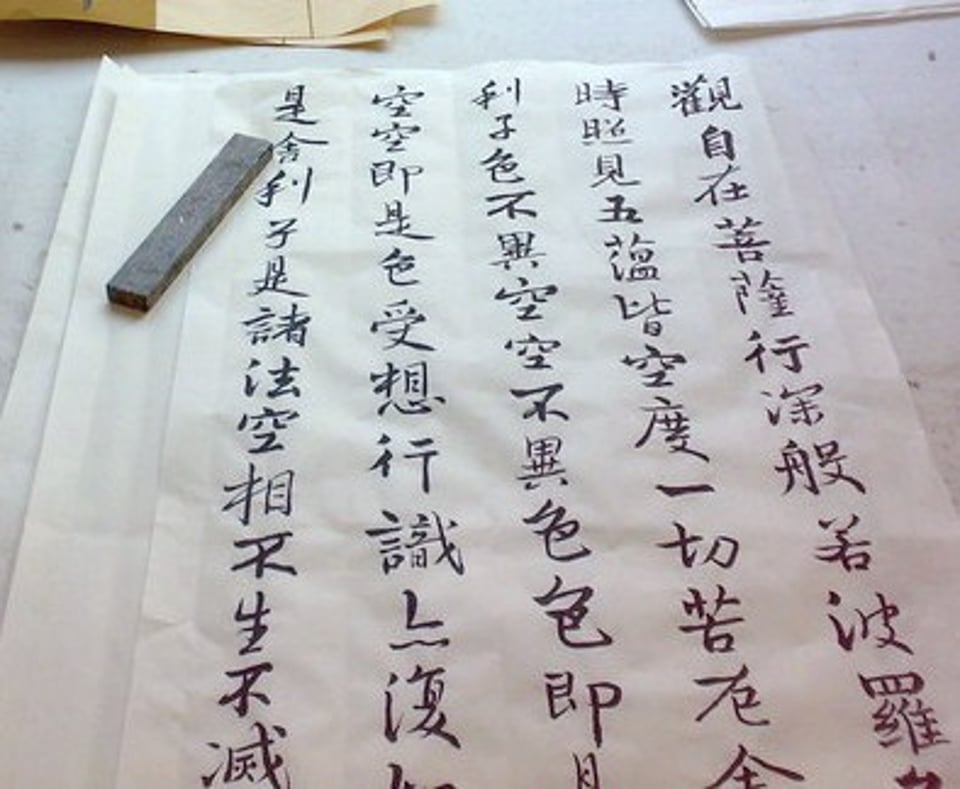 觀自在菩薩行深般若波羅
時照見五蕴皆空度一切苦厄舍
利子色不異空空不異色色即是
空空即是色受想行識亦復如
是舍利子是諸法空相不生不滅